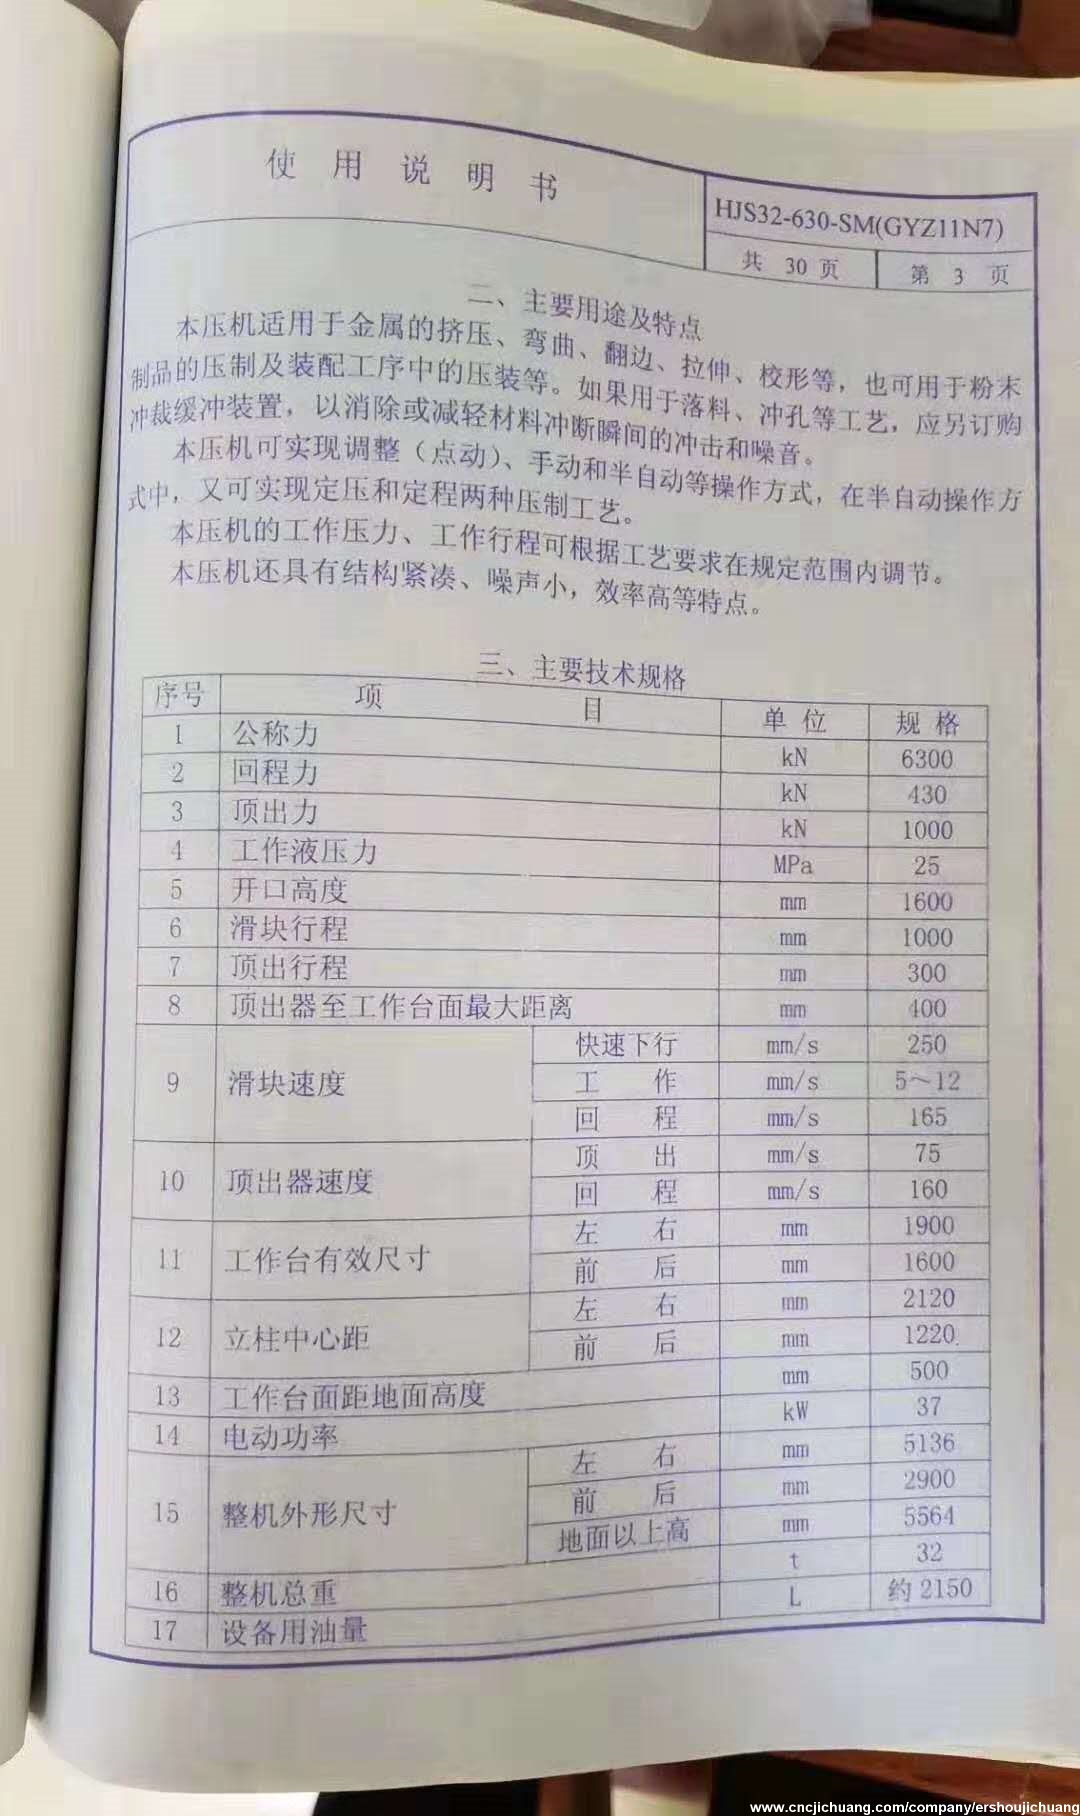 使 用 说 明 书
HJS32-630-SM(GYZ11N7)
共 30 页 第 3 页
二、主要用途及特点
本压机适用于金属的挤压、弯曲、翻边、拉伸、校形等，也可用于粉末
制品的压制及装配工序中的压装等。如果用于落料、冲孔等工艺，应另订购
冲裁缓冲装置，以消除或减轻材料冲断瞬间的冲击和噪音。
本压机可实现调整（点动）、手动和半自动等操作方式，在半自动操作方
式中，又可实现定压和定程两种压制工艺。
本压机的工作压力、工作行程可根据工艺要求在规定范围内调节。
本压机还具有结构紧凑、噪声小，效率高等特点。
三、主要技术规格
序号 项 目 单 位 规 格
1 公称力 kN 6300
2 回程力 kN 430
3 顶出力 kN 1000
4 工作液压力 MPa 25
5 开口高度 mm 1600
6 滑块行程 mm 1000
7 顶出行程 mm 300
8 顶出器至工作台面最大距离 mm 400
9 滑块速度 快速下行 mm/s 250
工 作 mm/s 5～12
回 程 mm/s 165
10 顶出器速度 顶 出 mm/s 75
回 程 mm/s 160
11 工作台有效尺寸 左 右 mm 1900
前 后 mm 1600
12 立柱中心距 左 右 mm 2120
前 后 mm 1220
13 工作台面距地面高度 mm 500
14 电动功率 kW 37
15 整机外形尺寸 左 右 mm 5136
前 后 mm 2900
地面以上高 mm 5564
16 整机总重 t 32
17 设备用油量 L 约 2150
www.cncjichuang.com/company/ershoujichuang